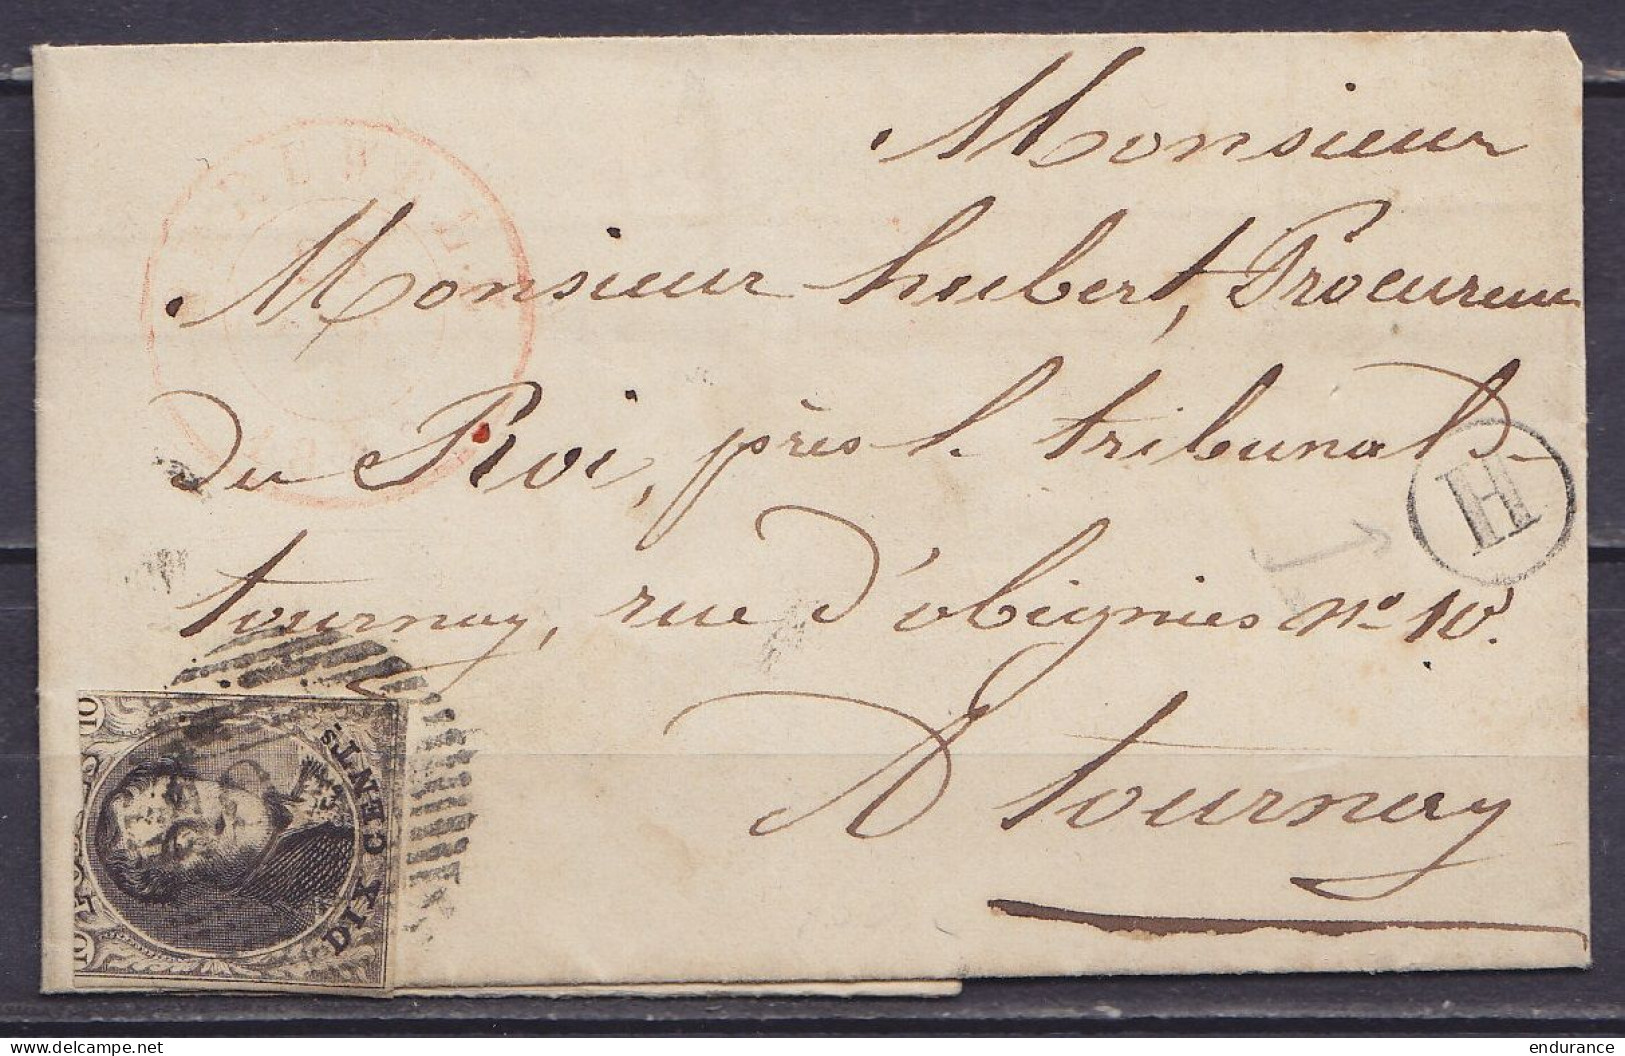 Monsieur
Monsieur hubert, Procureur
du Roi, près le tribunal d-
tournay, rue d'obignies no 10.
A tournay
H
DIX CENTS.
10
10
delcampe.net
endurance